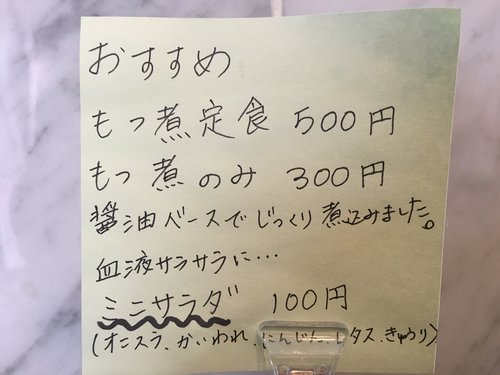 おすすめ
もつ煮定食 500円
もつ煮のみ 300円
醤油ベースでじっくり煮込みました。
血液サラサラに…
ミニサラダ 100円
(オニスラ、かいわれ、にんじん、レタス、きゅうり)